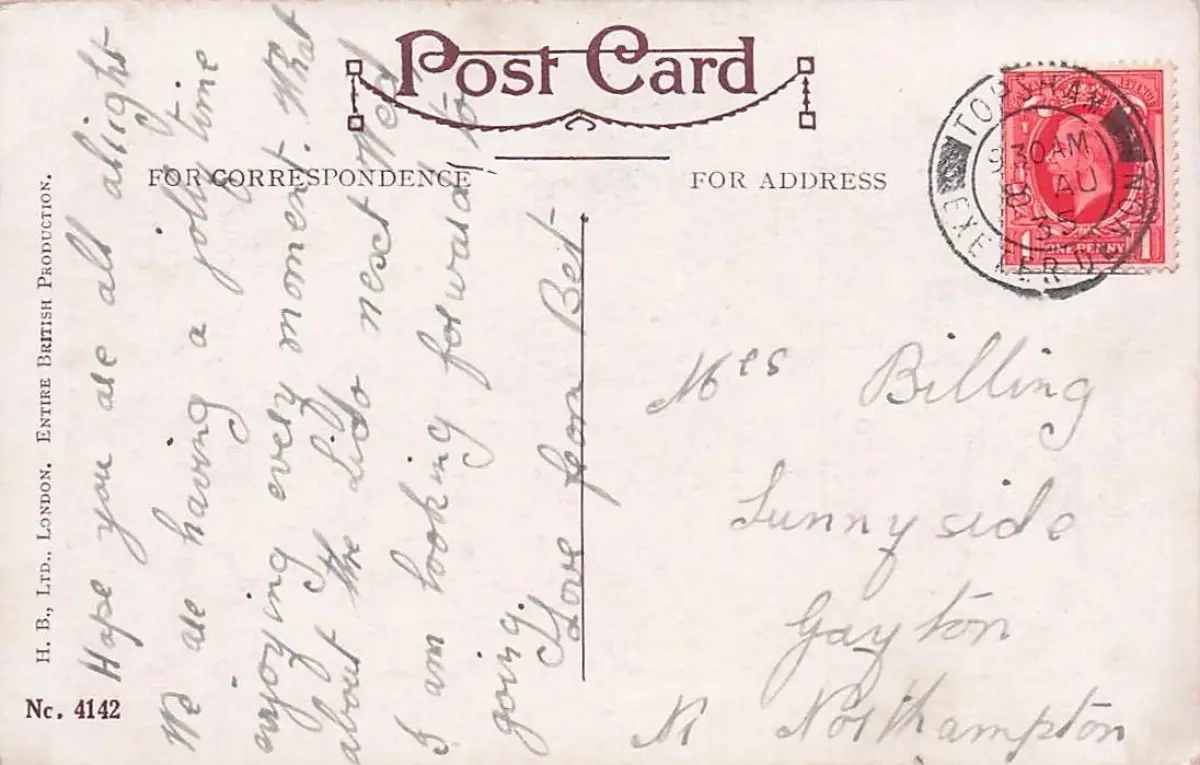 Post Card
FOR CORRESPONDENCE
FOR ADDRESS
TOPSHAM
9 30AM
8 AU
35
EXETER DEVON
ONE PENNY
1
1
Hope you are all alright
We are having a jolly time
enjoying every moment. What
about the Lido next Wed
I am looking forward to
going.
Love from Bet
Mrs Billing
Sunnyside
Gayton
Nr Northampton
H. B., LTD., LONDON. ENTIRE BRITISH PRODUCTION.
No. 4142